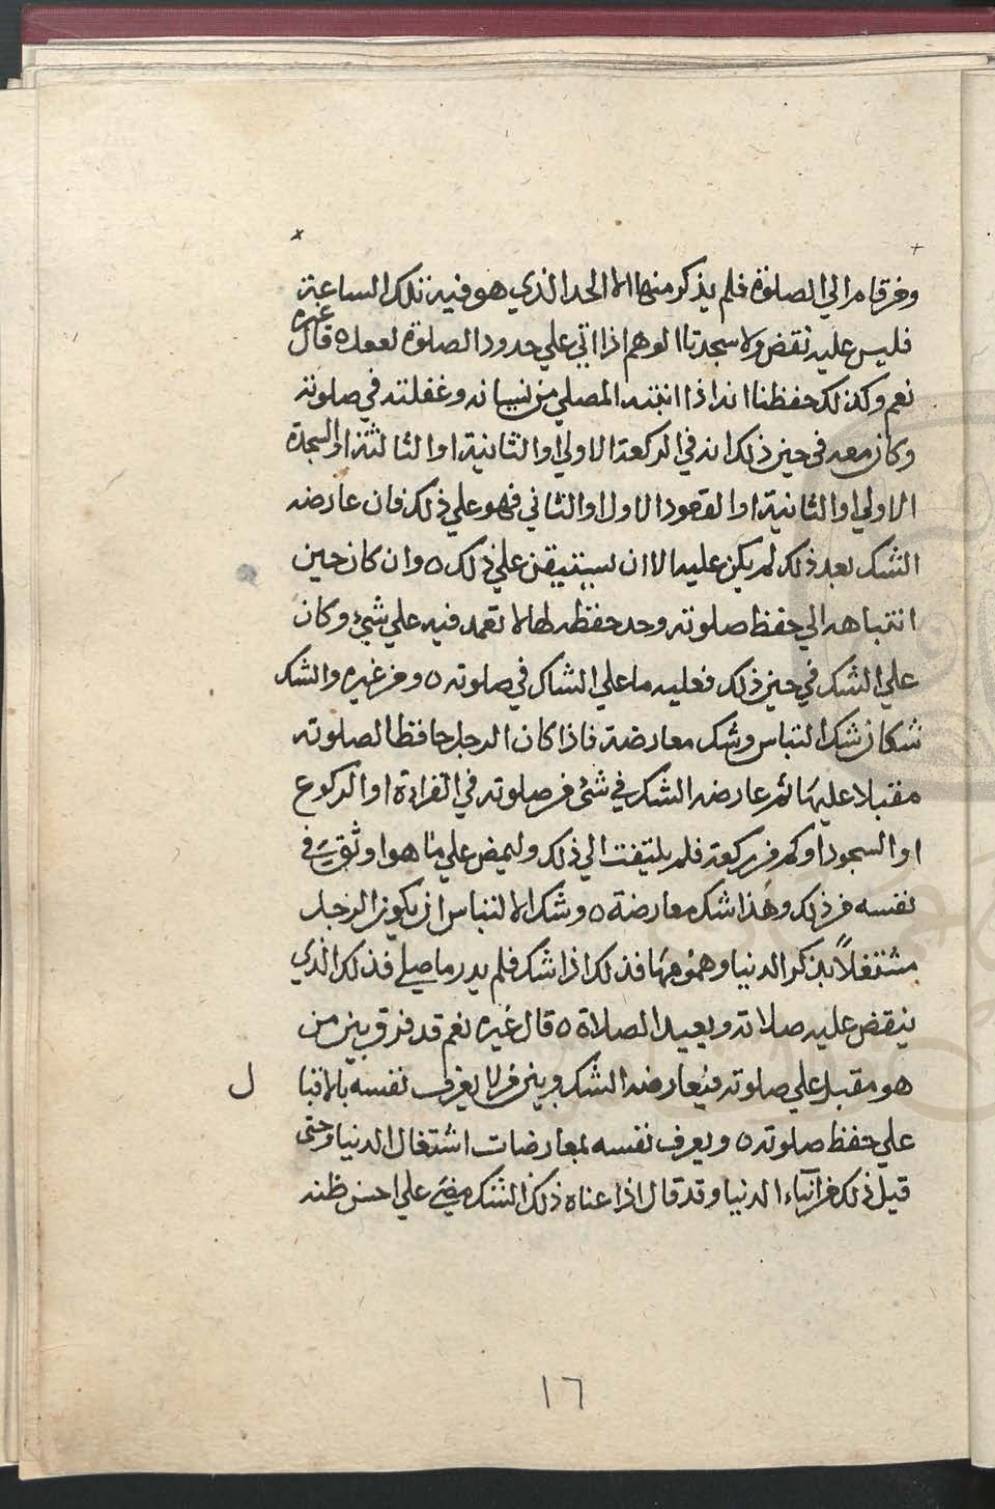 ومن قام الي الصلوة فلم يذكر منها الا الحد الذي هو فيه تلك الساعة
فليس عليه نقض ولا سجدتا الوهم اذا اتي علي حدود الصلوة لعله ٥ قال غيره
نعم وكذلك حفظنا انه اذا انتبه المصلي من نسيانه وغفلته في صلوته
وكان معه في حين ذلك انه في الركعة الاولي او الثانية او الثالثة او السجدة
الاولي او الثانية او القعود الاول او الثاني فهو علي ذلك فان عارضه
الشك بعد ذلك لم يكن عليه الا ان يستيقن علي ذلك ٥ وان كان حين
انتباهه الي حفظ صلوته وحد حفظه لها لا تعمد فيه علي شيء وكان
علي الشك في حين ذلك فعليه ما علي الشاك في صلوته ٥ ومن غيره والشك
شكان شك التباس وشك معارضة فاذا كان الرجل حافظا لصلوته
مقبلا عليها ثم عارضه الشك في شئ من صلوته في القراءة او الركوع
او السجود او كم من ركعة فلم يلتفت الي ذلك وليمض علي ما هو اوثق في
نفسه من ذلك وهذا شك معارضة ٥ وشك الالتباس ان يكون الرجل
مشتغلاً بذكر الدنيا وهمومها فذلك اذا شك فلم يدر ما صلي فذلك الذي
ينقض عليه صلاته ويعيد الصلاة ٥ قال غيره نعم قد فرق بين من
هو مقبل علي صلوته فيعارضه الشك وبين من لا يعرف نفسه بالاقبا ل
علي حفظ صلوته ٥ ويعرف نفسه بمعارضات اشتغال الدنيا وحتى
قيل ذلك من ابناء الدنيا وقد قال اذا عناه ذلك الشك مضي علي احسن ظنه
١٦